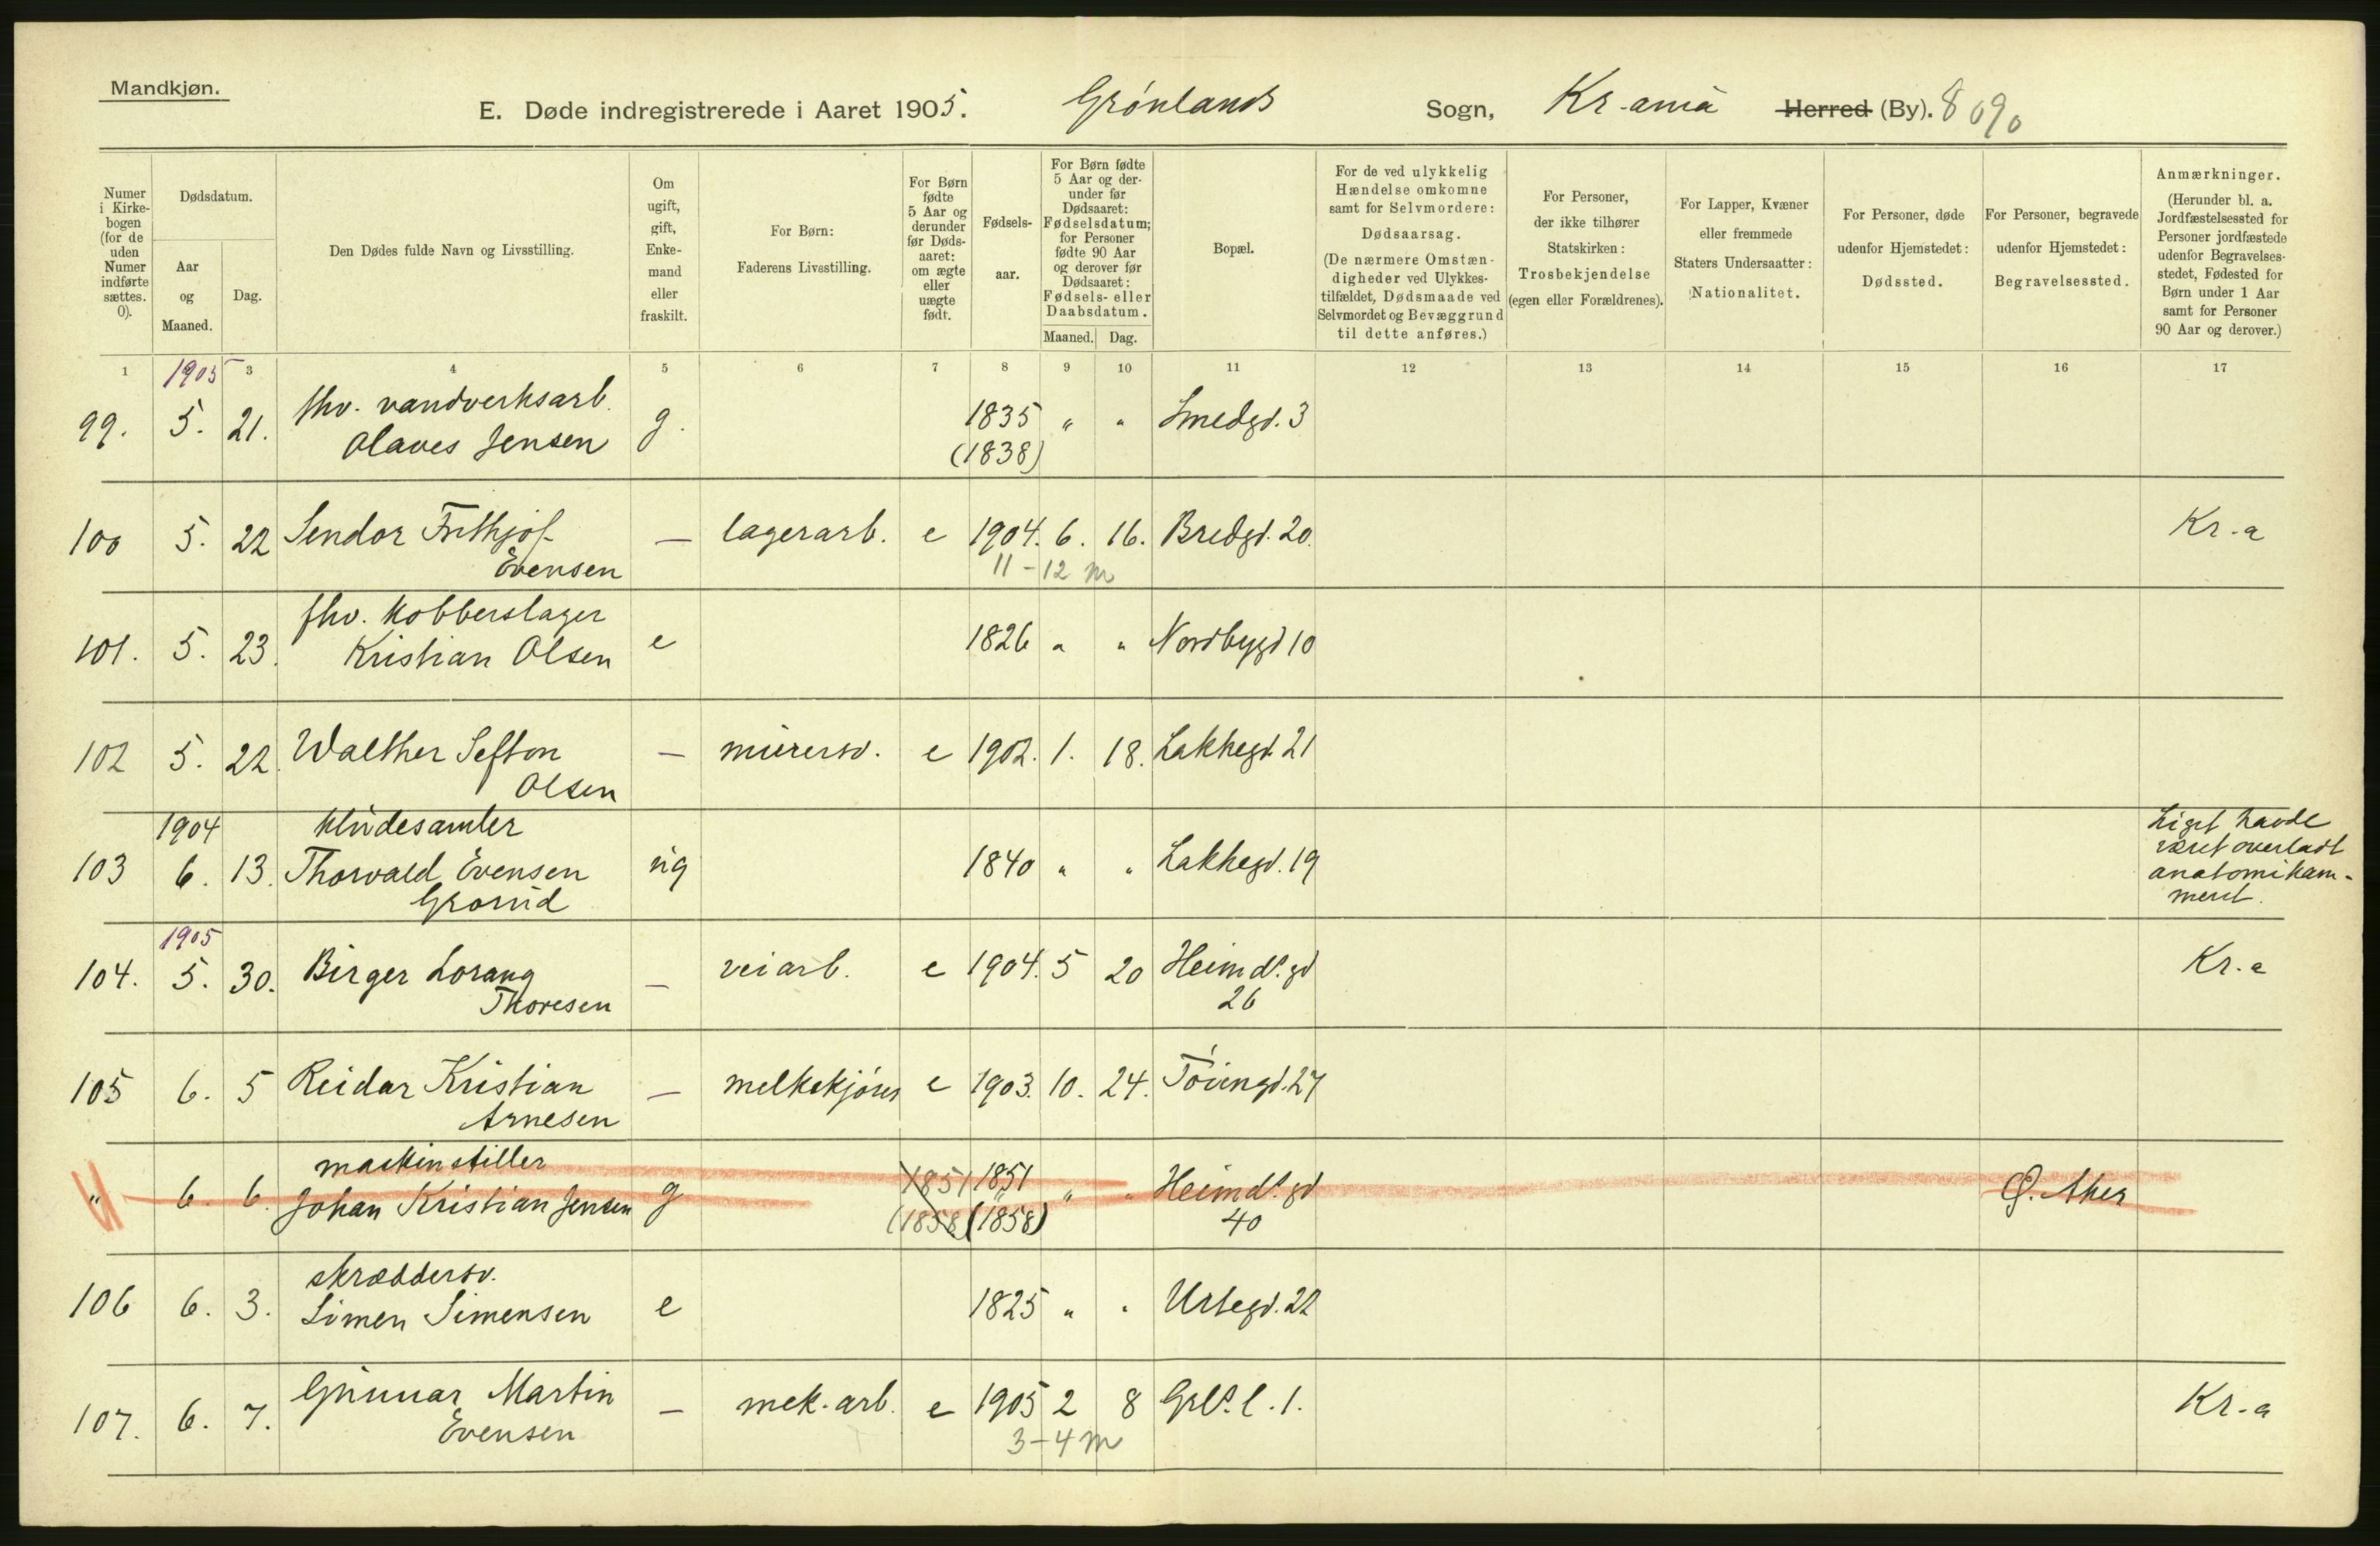 Mandkjøn.
E. Døde indregistrerede i Aaret 1905. Grønlands Sogn, Kr-ania Herred (By). 8090
Numer i Kirkebogen (for de uden Numer indførte sættes. 0).
Dødsdatum.
Aar og Maaned.
Dag.
Den Dødes fulde Navn og Livsstilling.
Om ugift, gift, Enkemand eller fraskilt.
For Børn:
Faderens Livsstilling.
For Børn fødte 5 Aar og derunder før Dødsaaret: om ægte eller uægte født.
Fødselsaar.
For Børn fødte 5 Aar og derunder før Dødsaaret: Fødselsdatum; for Personer fødte 90 Aar og derover før Dødsaaret: Fødsels- eller Daabsdatum.
Maaned. Dag.
Bopæl.
For de ved ulykkelig Hændelse omkomne samt for Selvmordere: Dødsaarsag.
(De nærmere Omstændigheder ved Ulykkestilfældet, Dødsmaade ved Selvmordet og Bevæggrund til dette anføres.)
For Personer, der ikke tilhører Statskirken: Trosbekjendelse (egen eller Forældrenes).
For Lapper, Kvæner eller fremmede Staters Undersaatter: Nationalitet.
For Personer, døde udenfor Hjemstedet: Dødssted.
For Personer, begravede udenfor Hjemstedet: Begravelsessted.
Anmærkninger.
(Herunder bl. a. Jordfæstelsessted for Personer jordfæstede udenfor Begravelsesstedet, Fødested for Børn under 1 Aar samt for Personer 90 Aar og derover.)
1 1905 3 4 5 6 7 8 9 10 11 12 13 14 15 16 17
fhv. vandverksarb.
99. 5. 21. Olaves Jensen g. 1835 " " Smedgd. 3
(1838)
100 5. 22 Sendor Frithjof — lagerarb. e 1904. 6. 16. Bredgd. 20. Kr-a
Evensen 11-12 m
fhv. kobberslager
101. 5. 23. Kristian Olsen e 1826 " " Nordbygd 10
102 5. 22. Walther Sefton — murersv. e 1902. 1. 18. Lakkegd. 21
Olsen
1904 kludesamler Liget havde
været overladt
103 6. 13. Thorvald Evensen ug 1840 " " Lakkegd. 19 anatomikam-
Grorud meret.
1905
104. 5. 30. Birger Lorang — veiarb. e 1904. 5 20 Heimds. gd Kr-a
Thoresen 26
105 6. 5 Reidar Kristian — melkekjører e 1903. 10. 24. Tøiengd. 27
Arnesen
maskinstiller 1851 1851
" 6. 6. Johan Kristian Jensen g (1858 (1858) " " Heimds. gd Ø. Aker
40
skræddersv.
106 6. 3. Simen Simensen e 1825 " " Urtegd. 22
107. 6. 7. Gunnar Martin — mek. arb. e 1905 2 8 Grls. l. 1. Kr-a
Evensen 3-4 m